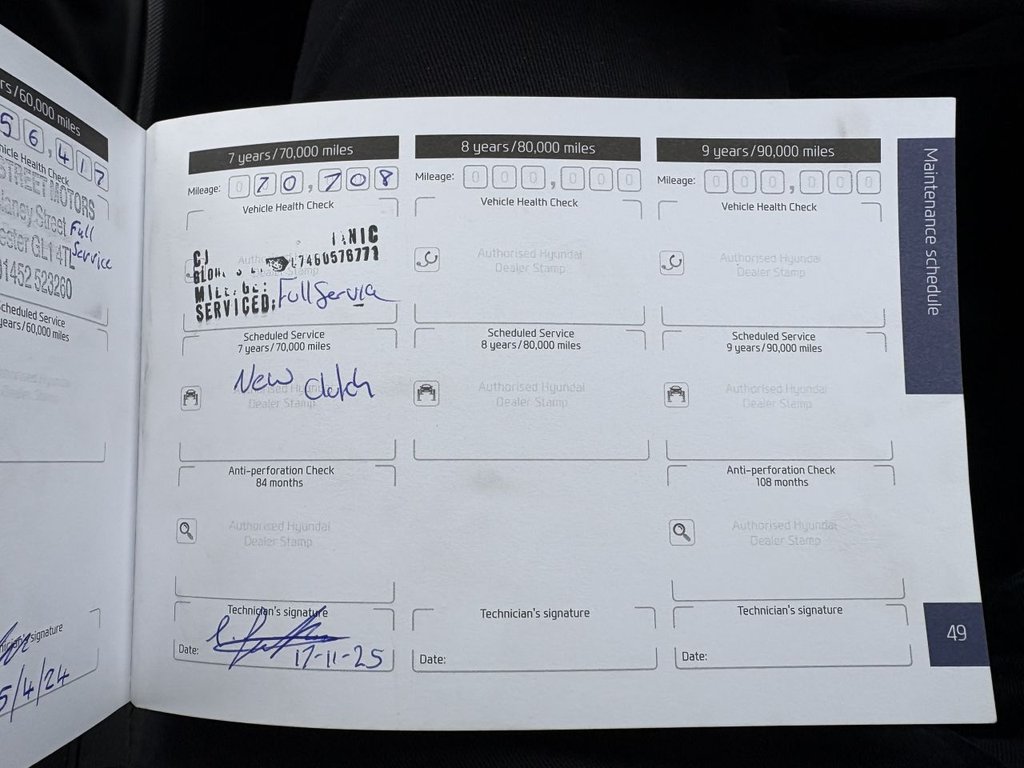 rs/60,000 miles
56,417
hicle Health Check
STREET MOTORS
Street Full
ester GL1 4TL Service
01452 523260
cheduled Service
years/60,000 miles
nician's signature
5/4/24
7 years/70,000 miles
Mileage: 070,708
Vehicle Health Check
CJ
07460576771
SERVICED: Full Service
Scheduled Service
7 years/70,000 miles
New Clutch
Authorised Hyundai
Dealer Stamp
Anti-perforation Check
84 months
Authorised Hyundai
Dealer Stamp
Technician's signature
Date: 17-11-25
8 years/80,000 miles
Mileage: 000,000
Vehicle Health Check
Authorised Hyundai
Dealer Stamp
Scheduled Service
8 years/80,000 miles
Authorised Hyundai
Dealer Stamp
Technician's signature
Date:
9 years/90,000 miles
Mileage: 000,000
Vehicle Health Check
Authorised Hyundai
Dealer Stamp
Scheduled Service
9 years/90,000 miles
Authorised Hyundai
Dealer Stamp
Anti-perforation Check
108 months
Authorised Hyundai
Dealer Stamp
Technician's signature
Date:
Maintenance schedule
49